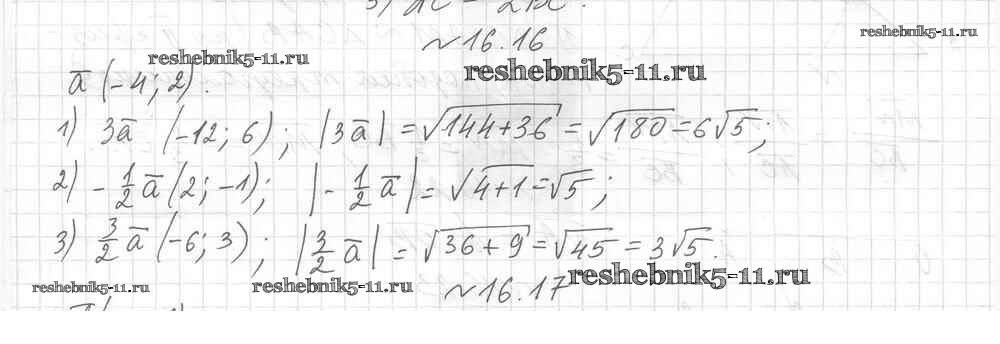 ~16.16
reshebnik5-11.ru
reshebnik5-11.ru
reshebnik5-11.ru
a̅ (-4; 2).
1) 3a̅ (-12; 6); |3a̅| = √144+36 = √180 = 6√5;
2) -1/2 a̅ (2; -1); |-1/2 a̅| = √4+1 = √5;
3) 3/2 a̅ (-6; 3); |3/2 a̅| = √36+9 = √45 = 3√5.
reshebnik5-11.ru
reshebnik5-11.ru
reshebnik5-11.ru
~16.17